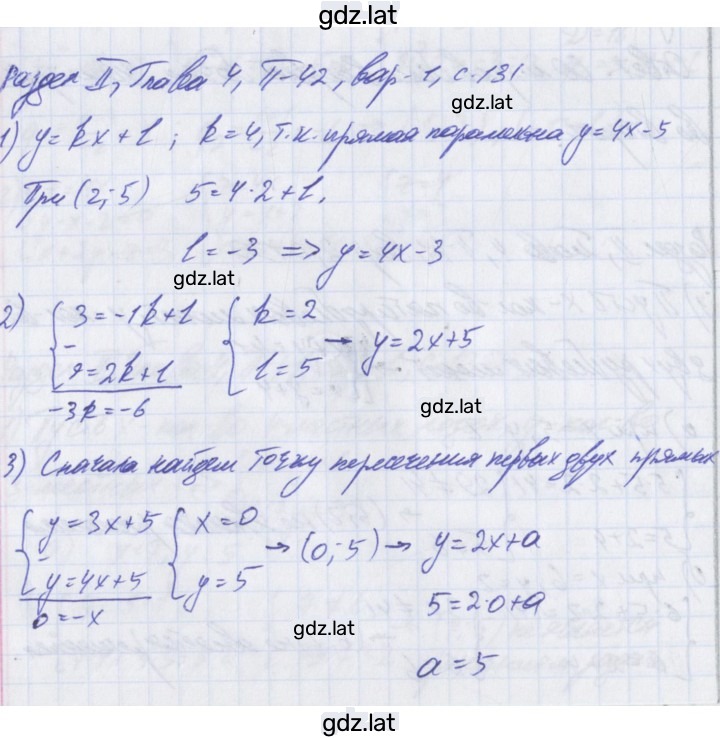 gdz.lat
Раздел II, Глава 4, П-42, вар-1, с.131
gdz.lat
1) y=kx+l ; k=4, т.к. прямая параллельна y=4x-5
При (2;5) 5=4·2+l,
l=-3 => y=4x-3
gdz.lat
2) { 3=-1k+l { k=2
- → y=2x+5
9=2k+l l=5
-3k=-6
gdz.lat
3) Сначала найдем точку пересечения первых двух прямых
{ y=3x+5 { x=0
- → (0;5) → y=2x+a
y=4x+5 y=5
5=2·0+a
0=-x
gdz.lat
a=5
gdz.lat